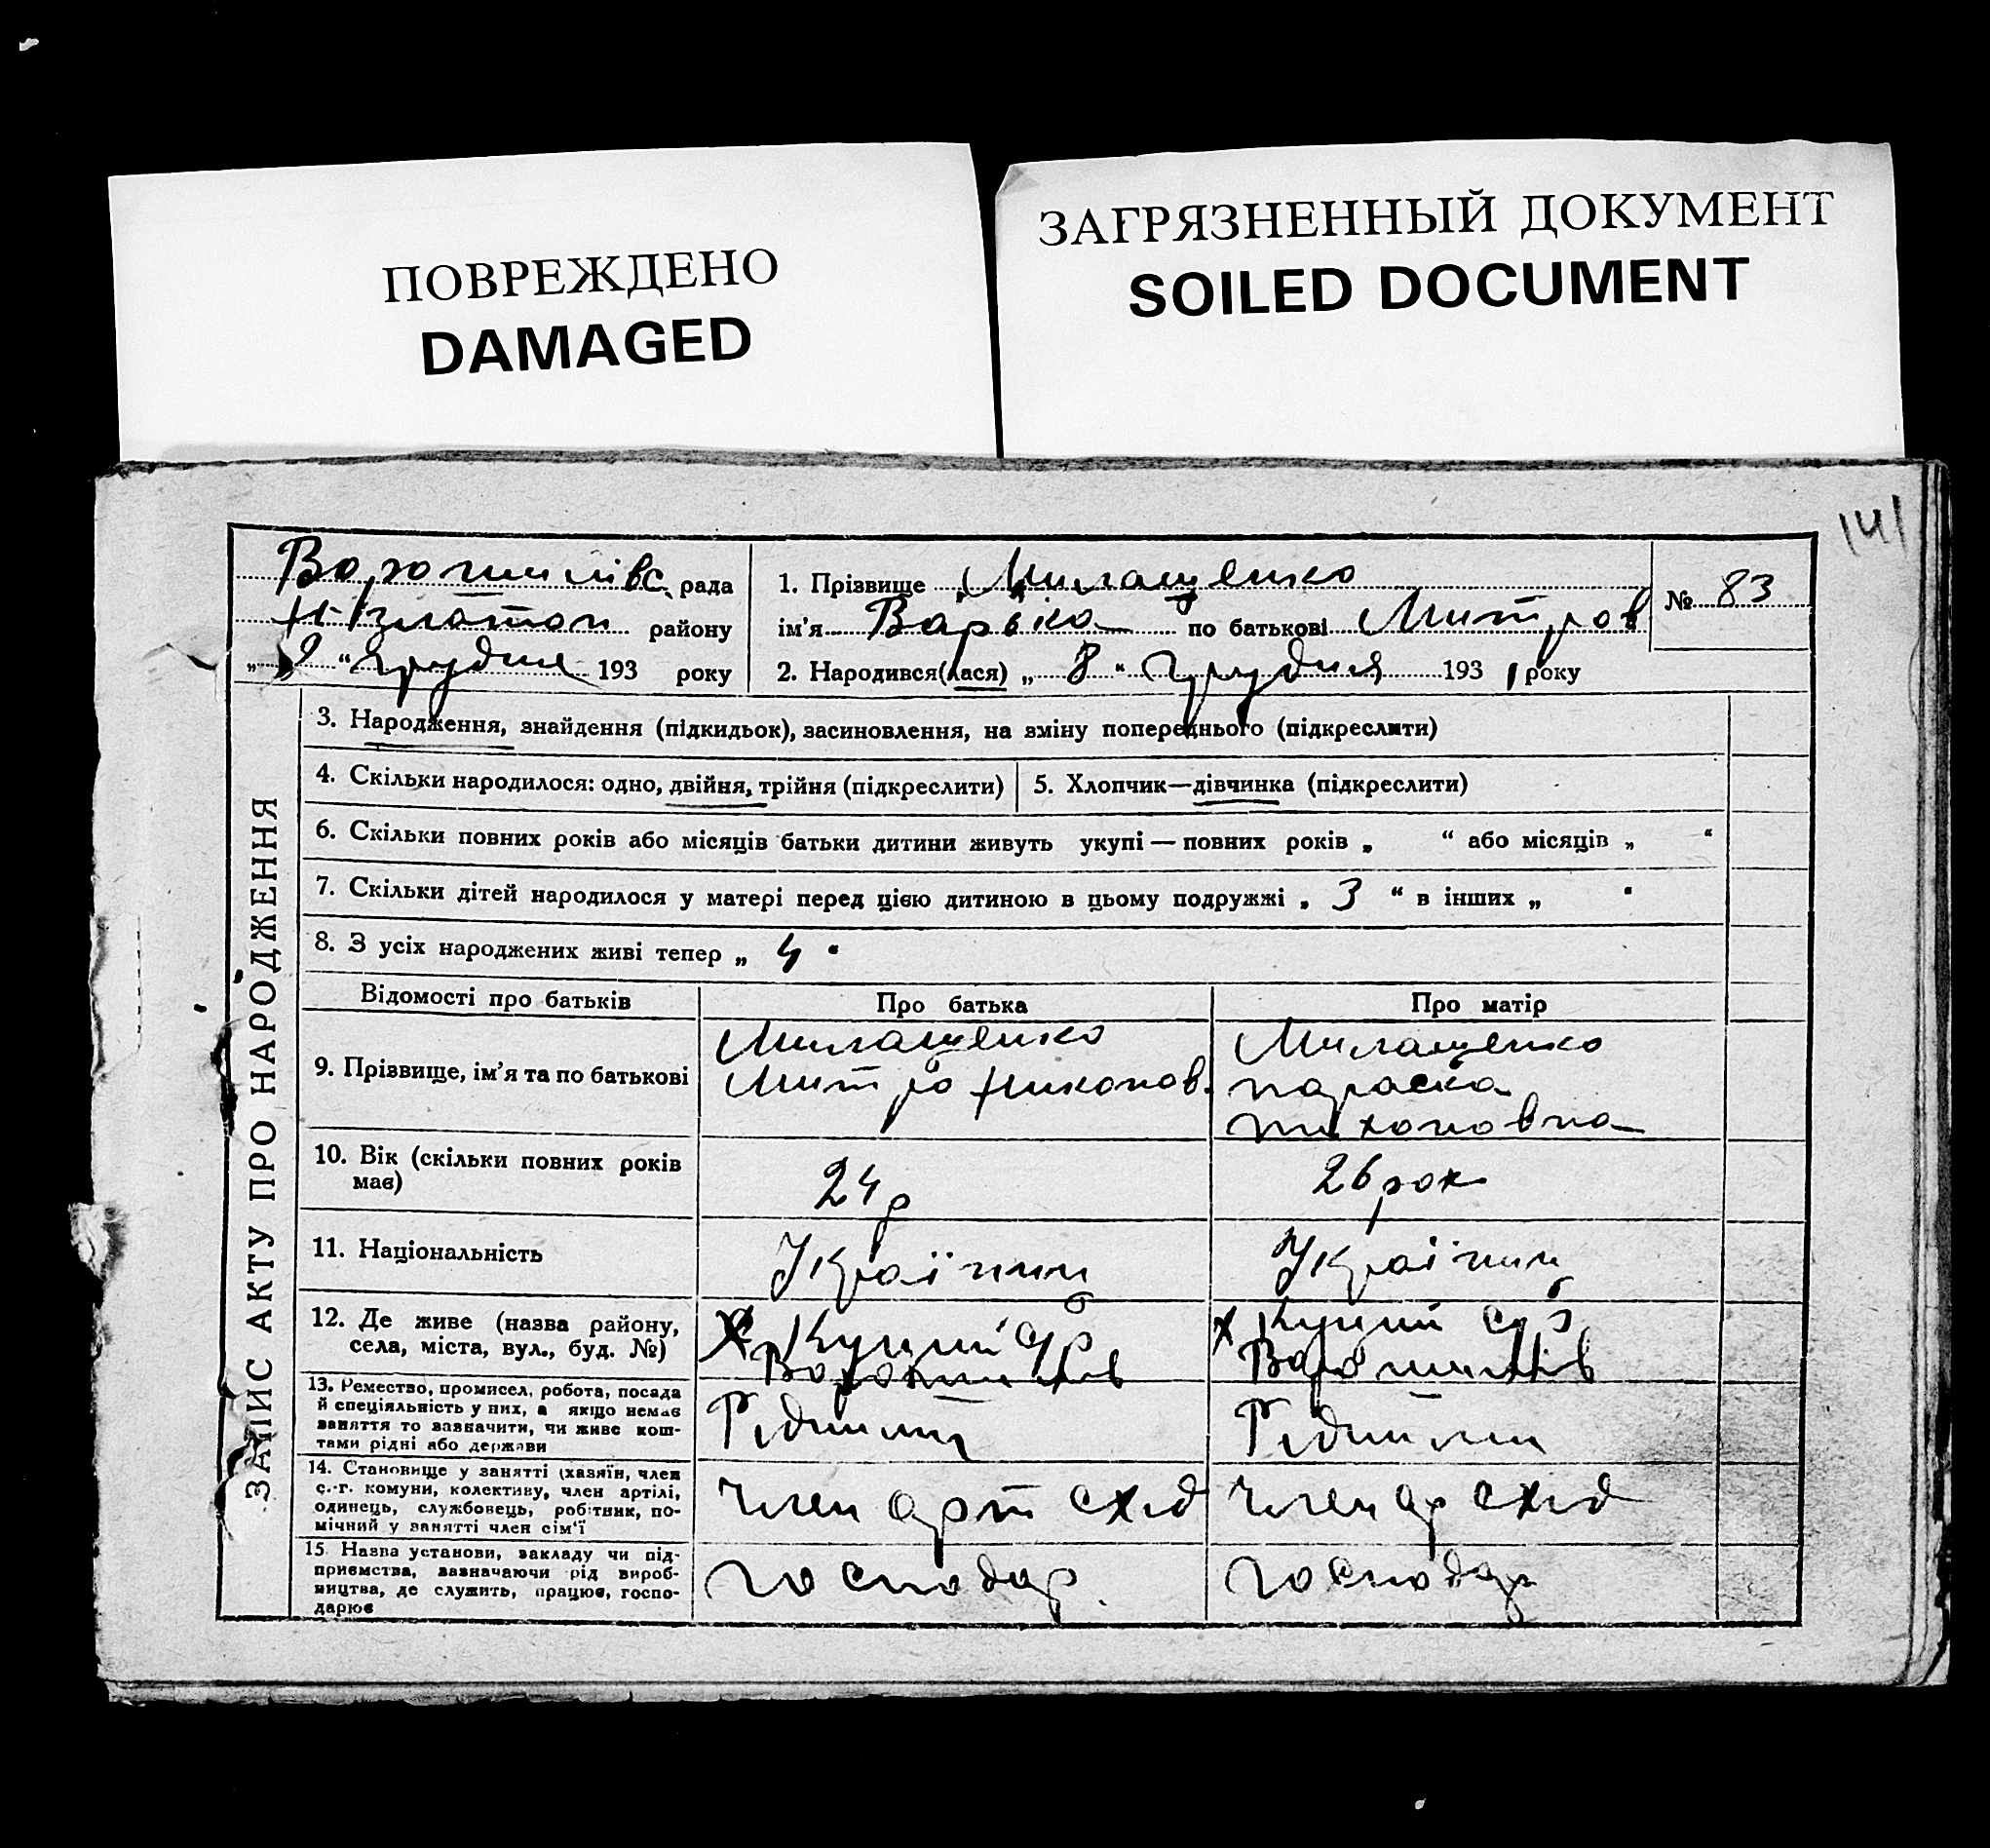 ПОВРЕЖДЕНО
DAMAGED
ЗАГРЯЗНЕННЫЙ ДОКУМЕНТ
SOILED DOCUMENT
141
рада
району
„ 9 “ грудня 193 року
1. Прізвище Милащенко
ім'я Варька по батькові Митров
2. Народився(лася) „ 8 “ грудня 1931 року
№ 83
ЗАПИС АКТУ ПРО НАРОДЖЕННЯ
3. Народження, знайдення (підкидьок), засиновлення, на зміну попереднього (підкреслити)
4. Скільки народилося: одно, двійня, трійня (підкреслити)
5. Хлопчик—дівчинка (підкреслити)
6. Скільки повних років або місяців батьки дитини живуть укупі — повних років „ “ або місяців „ “
7. Скільки дітей народилося у матері перед цією дитиною в цьому подружжі „ 3 “ в інших „ “
8. З усіх народжених живі тепер „ 4 “
Відомості про батьків
Про батька
Про матір
9. Прізвище, ім'я та по батькові
Милащенко
Митро Никонов.
Милащенко
параска
тихоновна
10. Вік (скільки повних років
має)
24р
26 рок
11. Національність
Українц
Українц
12. Де живе (назва району,
села, міста, вул., буд. №)
х Куций
х Куций
13. Ремество, промисел, робота, посада
й спеціяльність у них, а якщо немає
заняття то зазначити, чи живе кош-
тами рідні або держави
14. Становище у занятті (хазяїн, член
с.-г. комуни, колективу, член артілі,
одинець, службовець, робітник, по-
мічний у занятті член сім'ї
член арт схід
член ар схід
15. Назва установи, закладу чи під-
приємства, зазначаючи рід вироб-
ництва, де служить, працює, госпо-
дарює
господар.
господар